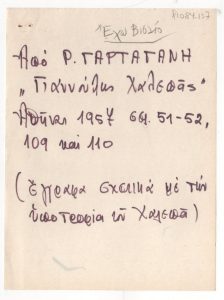 Έχω βιβλίο
Από Ρ. ΓΑΡΤΑΓΑΝΗ
„Γιαννούλης Χαλεπάς"
Αθήναι 1957 σελ. 51-52,
109 και 110
(Έγγραφα σχετικά με την
υποτροφία του Χαλεπά)